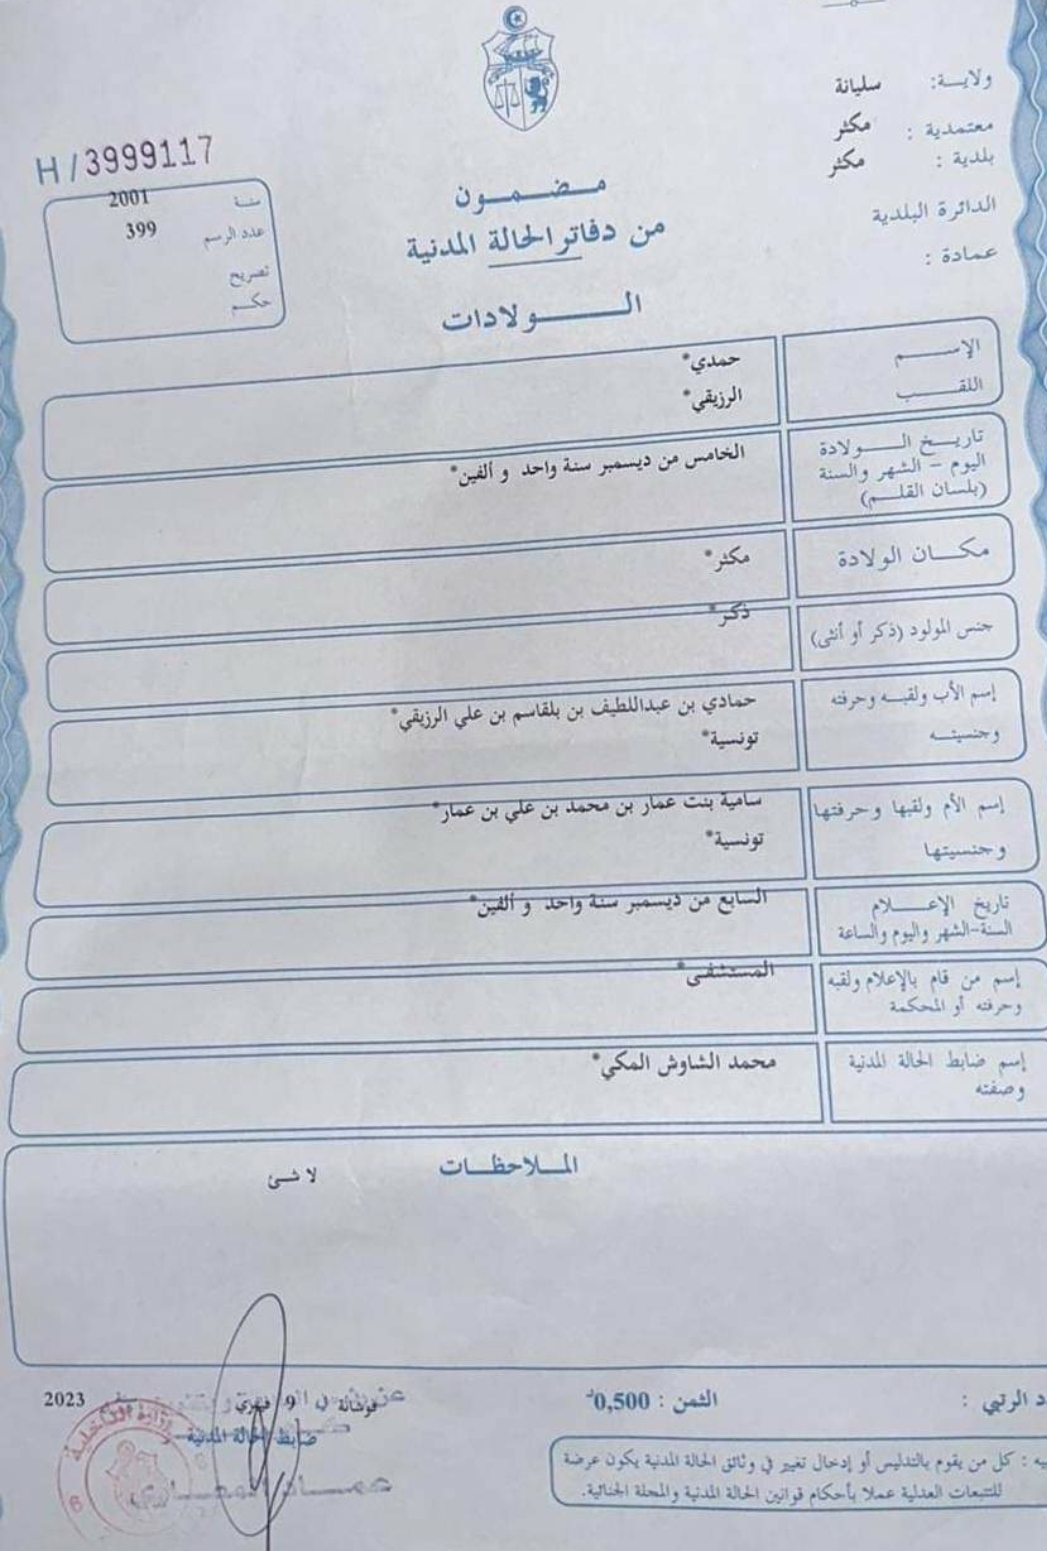 ولايـــة: سليانة
معتمدية : مكثر
بلدية : مكثر
الدائرة البلدية
عمادة :
H / 3999117
سنة 2001
عدد الرسم 399
تصريح
حكـــم
مـضـمـــون
من دفاتر الحالة المدنية
الـــــولادات
الإســـــم حمدي*
اللقـــــب الرزيقي*
تاريــخ الـــولادة
اليوم – الشهر والسنة
(بلسان القلـــم)
الخامس من ديسمبر سنة واحد و ألفين*
مكـــان الولادة مكثر*
جنس المولود (ذكر أو أنثى) ذكر*
إسم الأب ولقبـــه وحرفته
وجنسيتـــه
حمادي بن عبداللطيف بن بلقاسم بن علي الرزيقي*
تونسية*
إسم الأم ولقبها وحرفتها
وجنسيتها
سامية بنت عمار بن محمد بن علي بن عمار*
تونسية*
تاريخ الإعـــلام
السنة-الشهر واليوم والساعة
السابع من ديسمبر سنة واحد و ألفين*
إسم من قام بالإعلام ولقبه
وحرفته أو المحكمة
المستشفى*
إسم ضابط الحالة المدنية
وصفته
محمد الشاوش المكي*
المــلاحظــات
لا شئ
د الرتبي :
الثمن : 0,500د
فوشانة في 9 فيفري 2023
ضابط الحالة المدنية
وزارة الداخلية
6
يه : كل من يقوم بالتدليس أو إدخال تغيير في وثائق الحالة المدنية يكون عرضة
للتتبعات العدلية عملا بأحكام قوانين الحالة المدنية والمجلة الجنائية.